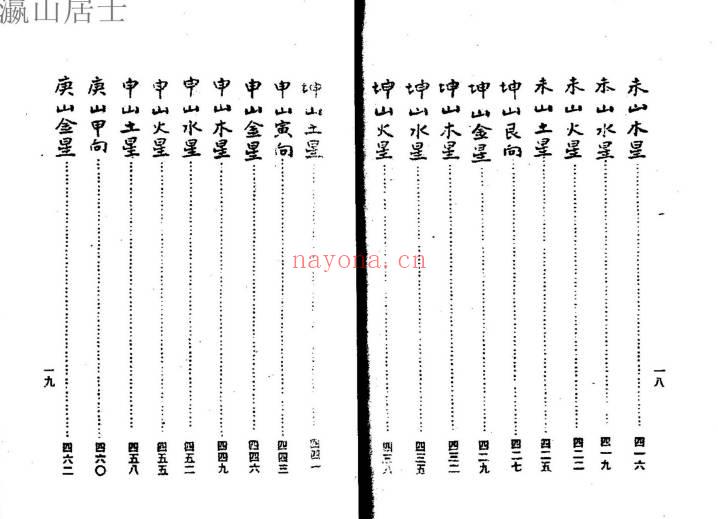 瀛山居士
未山木星……四一六
未山水星……四一九
未山火星……四二二
未山土星……四二五
坤山艮向……四二七
坤山金星……四二九
坤山木星……四三二
坤山水星……四三五
坤山火星……四三八
一八
坤山土星……四四一
申山寅向……四四三
申山金星……四四六
申山木星……四四九
申山水星……四五二
申山火星……四五五
申山土星……四五八
庚山甲向……四六〇
庚山金星……四六二
一九
nayona.cn